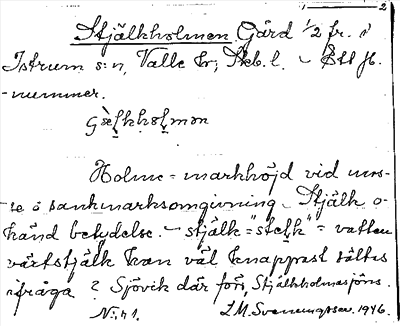 2
Stjälkholmen Gård 1/2 fr. i
Istrum s:n, Valle hr, Skb. l. – Ett jb.
-nummer.
Holme = markhöjd vid mos-
se o sankmarksomgivning. Stjälk o-
känd betydelse. – stjälk = "stelk" = vatten
växtstjälk kan väl knappast sättas
ifråga? Sjövik där förr, Stjälkholmasjöns.
N:r 1.